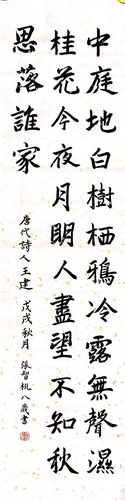 中庭地白樹栖鴉冷露無聲濕
桂花今夜月明人盡望不知秋
思落誰家
唐代詩人王建 戊戌秋月 張智八歲書